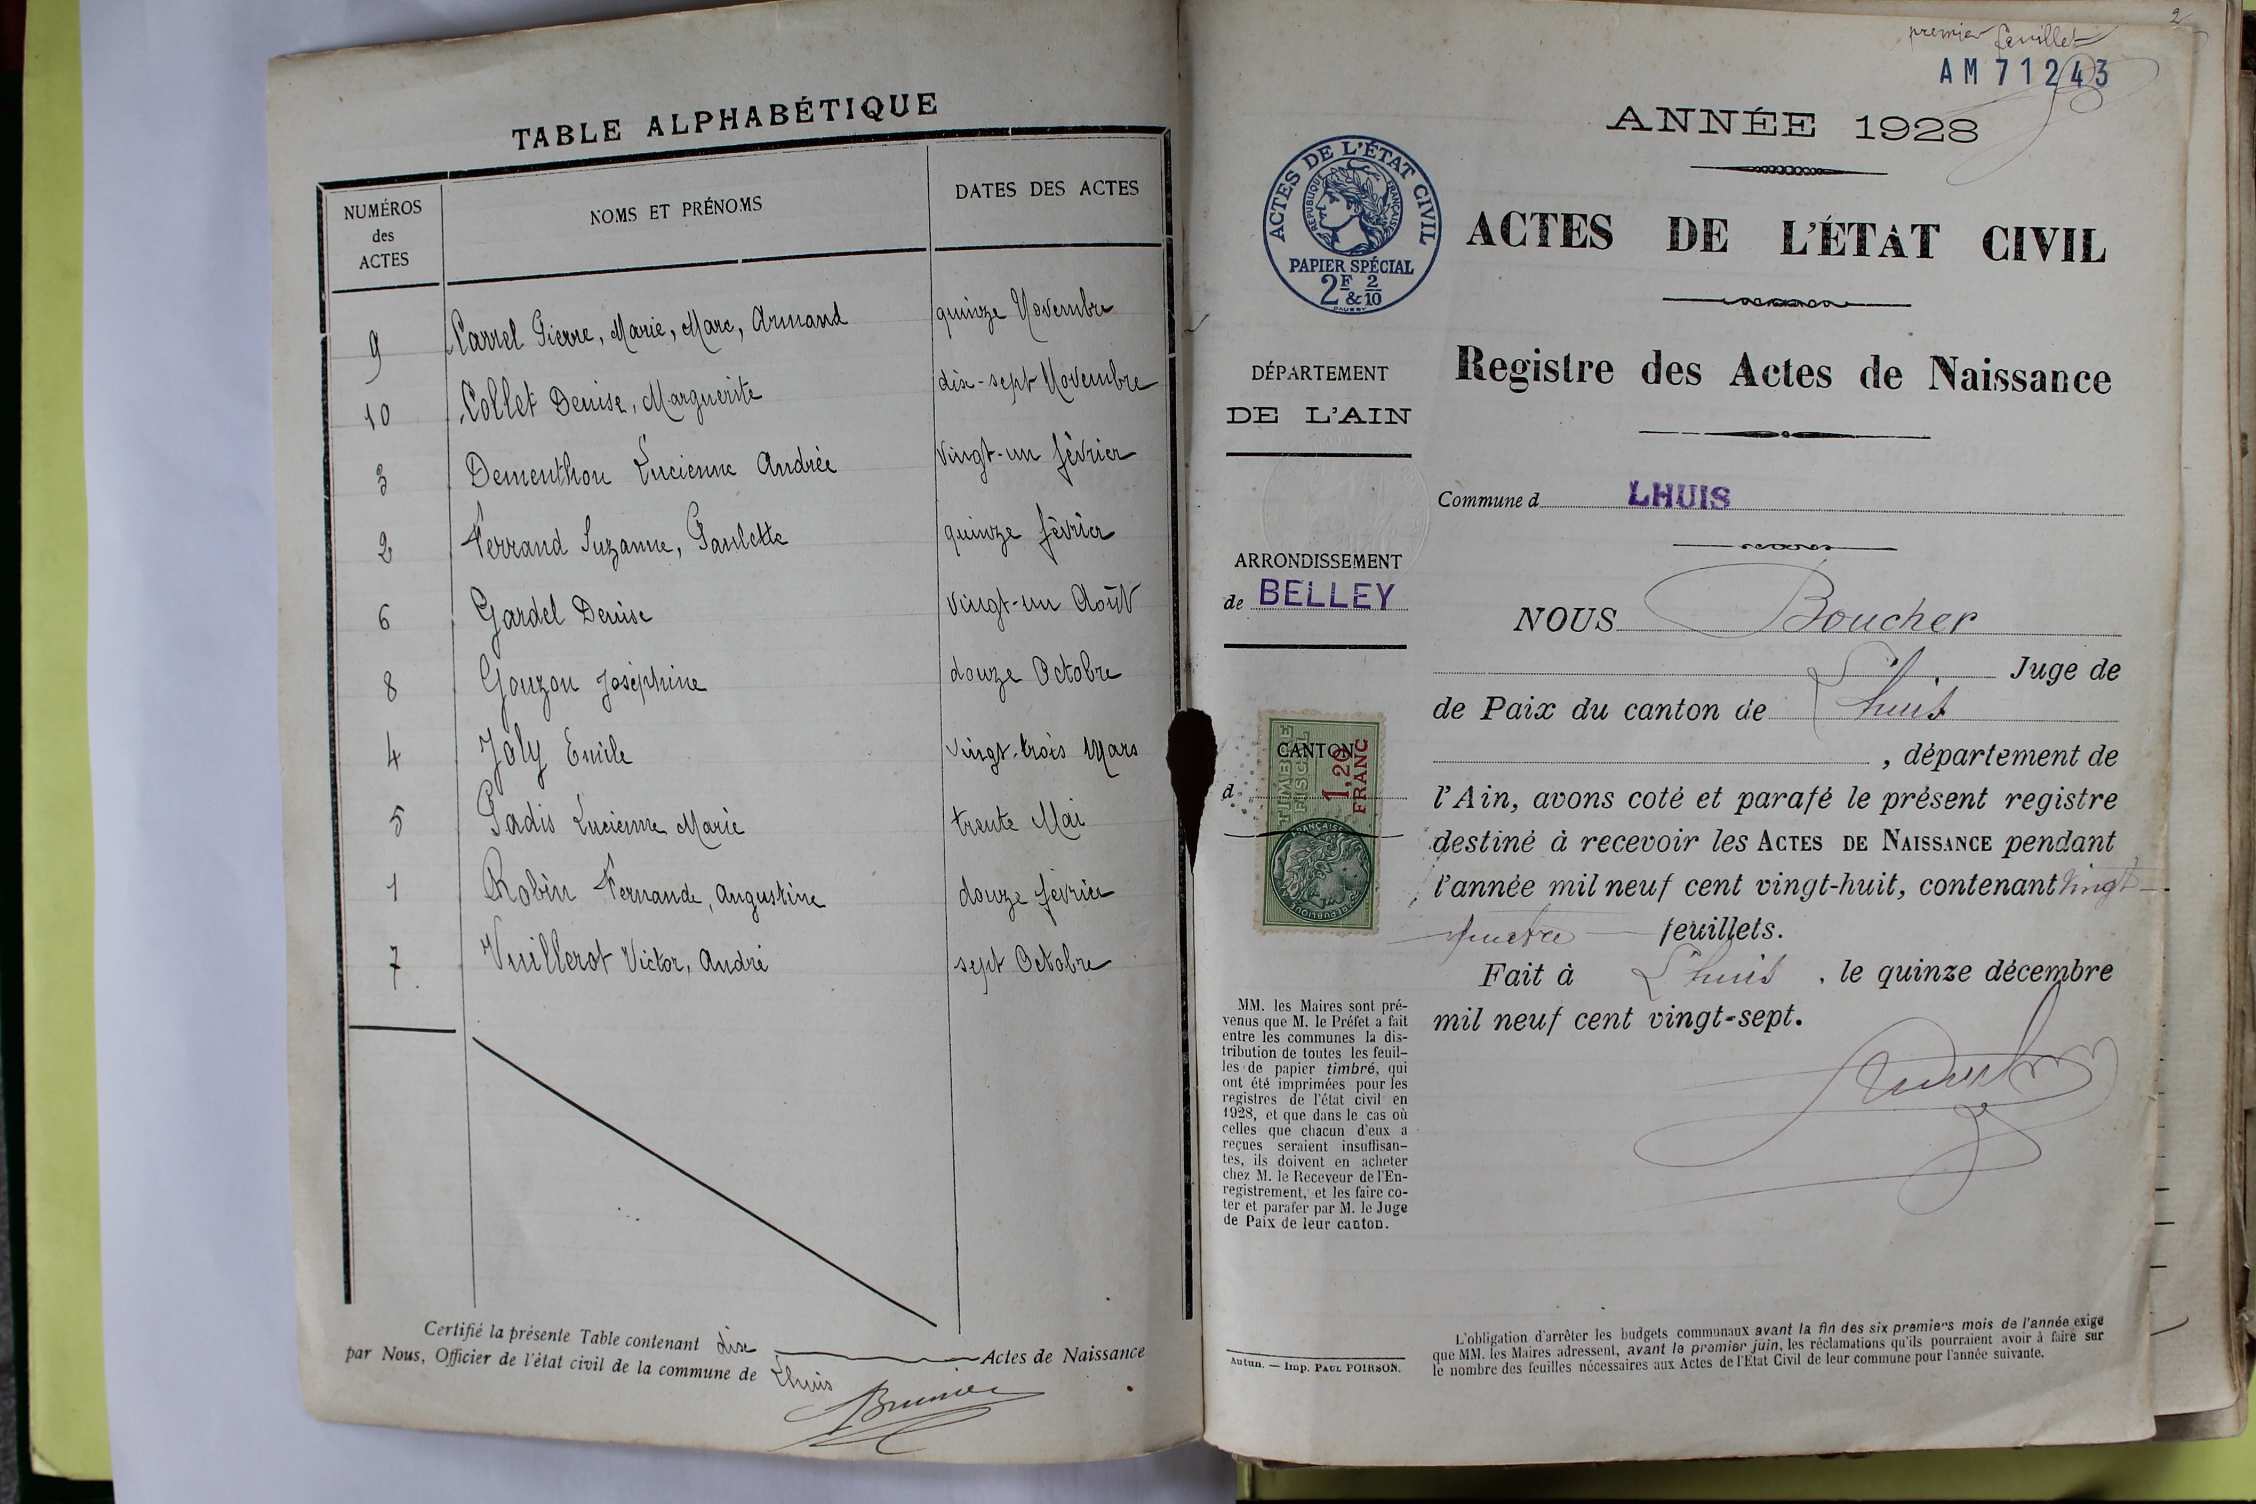 TABLE ALPHABÉTIQUE
NUMÉROS
des
ACTES
NOMS ET PRÉNOMS
DATES DES ACTES
9 Carrel Pierre, Marie, Marc, Armand quinze Novembre
10 Collet Denise, Marguerite dix-sept Novembre
3 Dementhon Lucienne Andrée Vingt-un février
2 Ferrand Suzanne, Paulette quinze février
6 Gardel Denise Vingt-un Août
8 Gouzou Joséphine douze Octobre
4 Joly Emile Vingt-trois Mars
5 Padis Lucienne Marie trente Mai
1 Robin Fernande, Augustine douze février
7 Vuillerot Victor, André sept Octobre
Certifié la présente Table contenant dix Actes de Naissance
par Nous, Officier de l'état civil de la commune de Lhuis
2
premier feuillet
AM 71243
ANNÉE 1928
ACTES DE L'ÉTAT CIVIL
RÉPUBLIQUE FRANÇAISE
PAPIER SPÉCIAL
2F & 2/10
ACTES DE L'ÉTAT CIVIL
Registre des Actes de Naissance
DÉPARTEMENT
DE L'AIN
Commune d LHUIS
ARRONDISSEMENT
de BELLEY
CANTON
d
TIMBRE
FISCAL
1,20
FRANC
NOUS Boucher
Juge de
de Paix du canton de Lhuis
, département de
l'Ain, avons coté et parafé le présent registre
destiné à recevoir les ACTES DE NAISSANCE pendant
l'année mil neuf cent vingt-huit, contenant vingt-
quatre feuillets.
Fait à Lhuis, le quinze décembre
mil neuf cent vingt-sept.
MM. les Maires sont pré-
venus que M. le Préfet a fait
entre les communes la dis-
tribution de toutes les feuil-
les de papier timbré, qui
ont été imprimées pour les
registres de l'état civil en
1928, et que dans le cas où
celles que chacun d'eux a
reçues seraient insuffisan-
tes, ils doivent en acheter
chez M. le Receveur de l'En-
registrement, et les faire co-
ter et parafer par M. le Juge
de Paix de leur canton.
Autun. — Imp. PAUL POIRSON.
L'obligation d'arrêter les budgets communaux avant la fin des six premiers mois de l'année exige
que MM. les Maires adressent, avant le premier juin, les réclamations qu'ils pourraient avoir à faire sur
le nombre des feuilles nécessaires aux Actes de l'Etat Civil de leur commune pour l'année suivante.